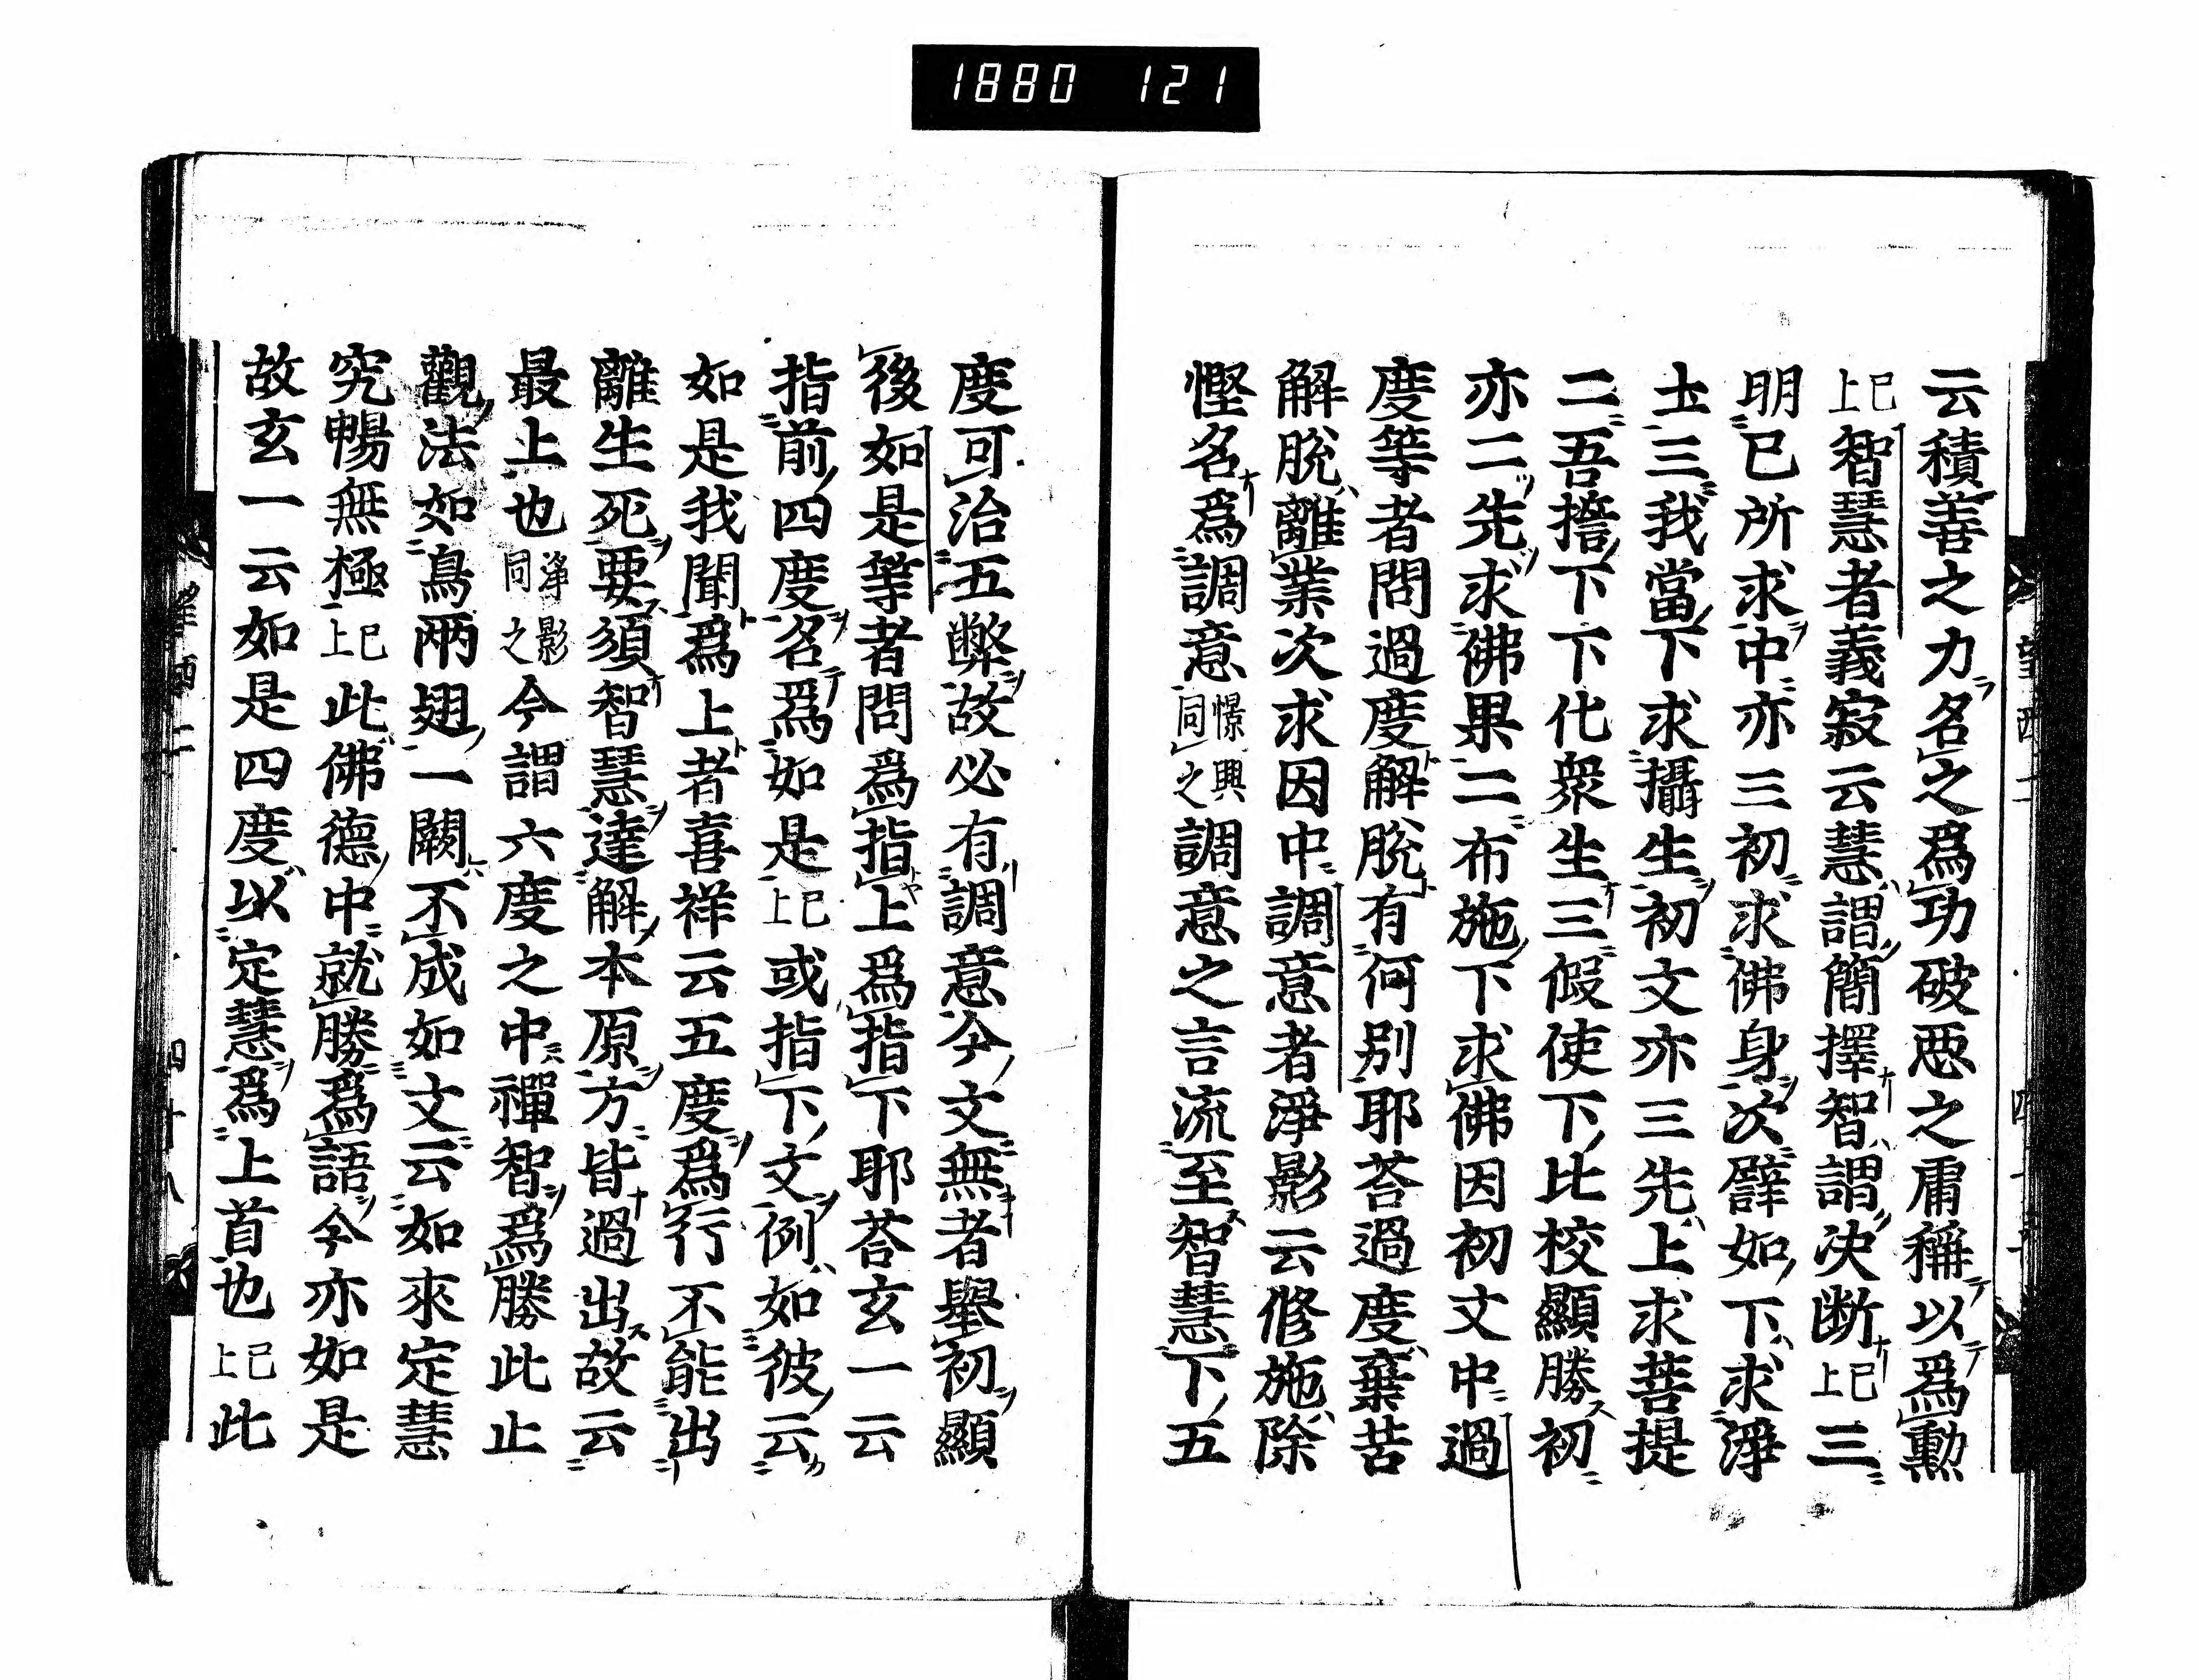 1880 121
云積善之力名之爲功破惡之庸稱以爲勲
已上智慧者義寂云慧謂簡擇智謂决断已上三
明已所求中亦三初求佛身次譬如下求淨
土三我當下求攝生初文亦三先上求菩提
二吾擔下下化衆生三假使下比校顯勝初
亦二先求佛果二布施下求佛因初文中過
度等者問過度解脫有何别耶荅過度棄苦
解脫離業次求因中調意者淨影云修施除
慳名爲調意憬興同之調意之言流至智慧下五
度可治五弊故必有調意今文無者擧初顯
後如是等者問爲指上爲指下耶荅玄一云
指前四度名爲如是已上或指下文例如彼云
如是我聞爲上者喜祥云五度爲行不能出
離生死要須智慧達解本原方皆過出故云
最上也淨影同之今謂六度之中禪智爲勝此止
觀法如鳥兩翅一闕不成如文云如來定慧
究暢無極已上此佛德中就勝爲語今亦如是
故玄一云如是四度以定慧爲上首也已上此